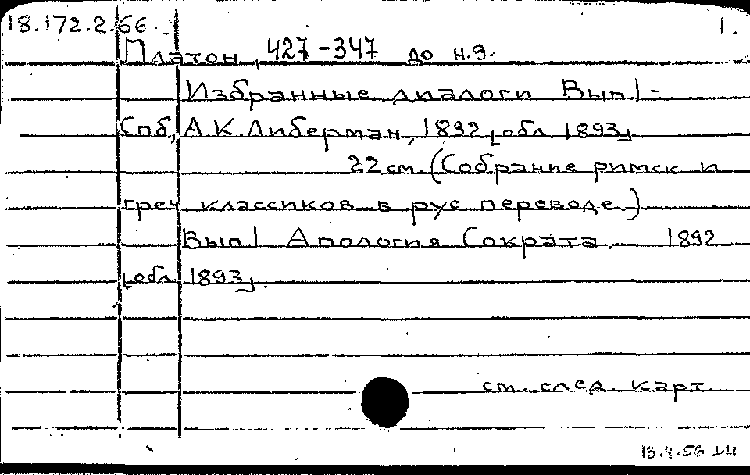 18.172.2.66. 1.
Платон, 427-347 до н.э.
Избранные диалоги Вып. 1-
Спб, А.К. Либерман, 1892 [обл. 1893]
22 см. (Собрание римск и
греч классиков в рус переводе.)
Вып 1 Апология Сократа. 1892
[обл 1893].
см. след. карт.